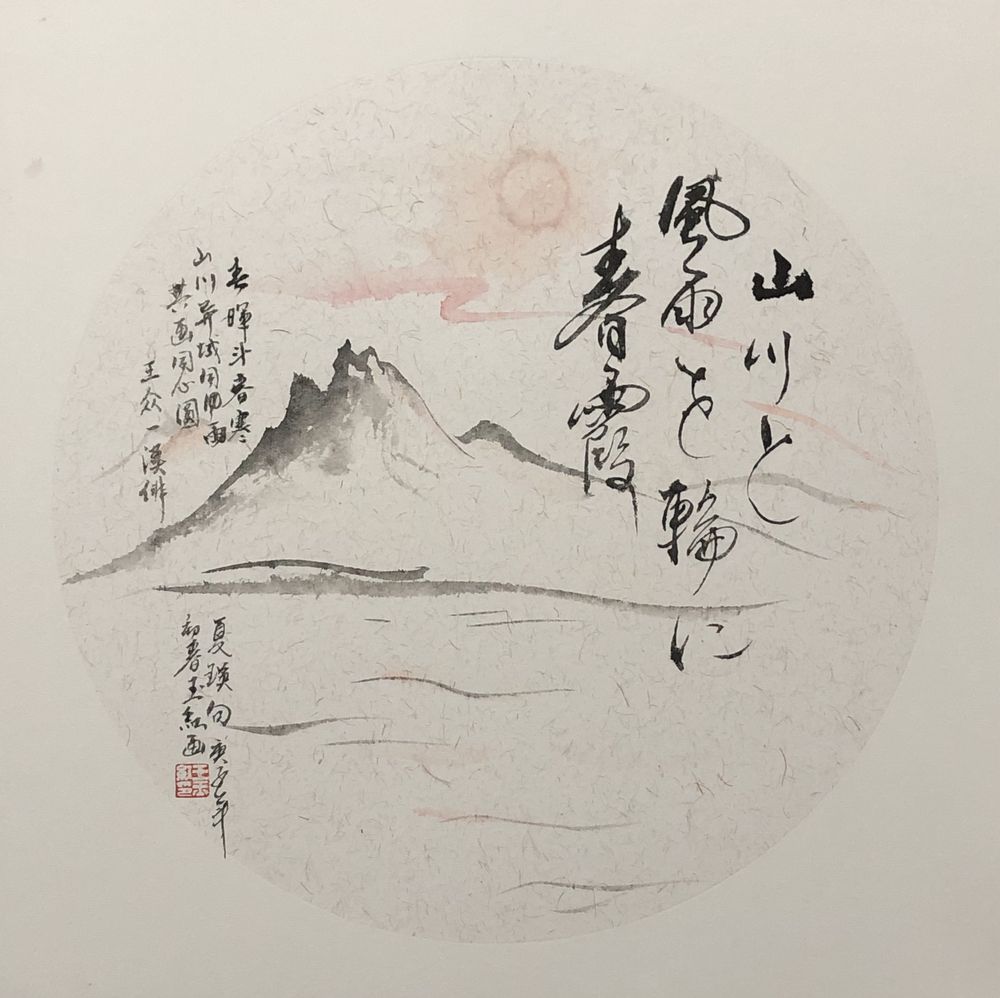 山川と
風雨を輪に
春霞
春暉斗春寒
山川异域同風雨
共画同心圆
王众一漢俳
夏瑛句 庚子年
初春玉红画